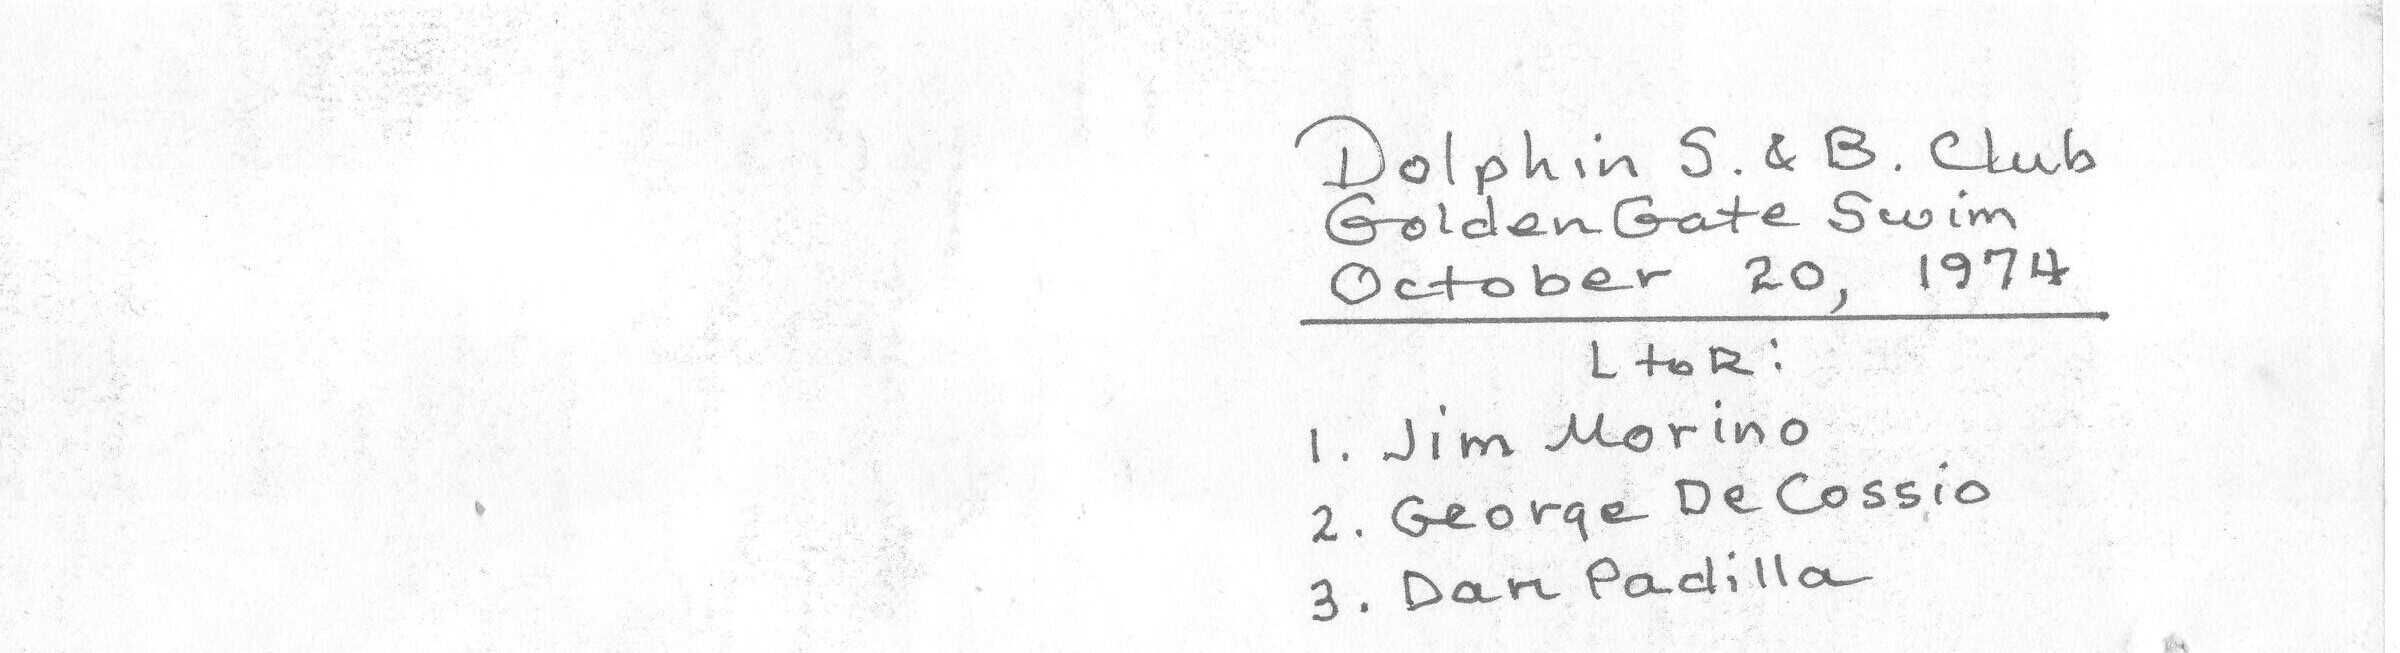 Dolphin S. & B. Club
Golden Gate Swim
October 20, 1974
L to R:
1. Jim Morino
2. George De Cossio
3. Dan Padilla